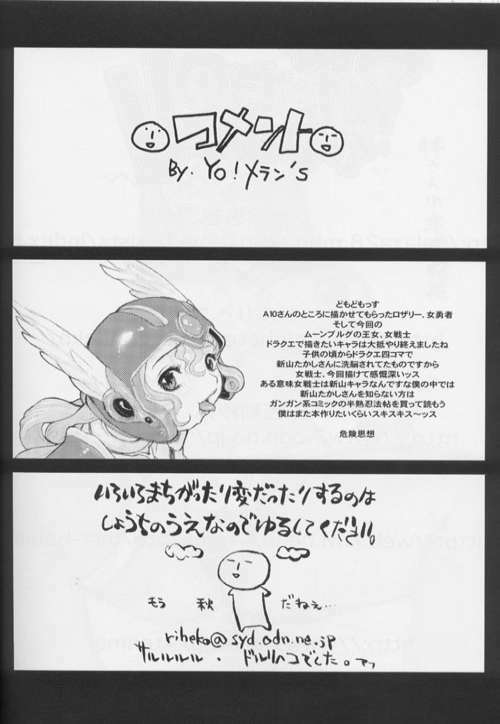 コメント
By. YO!メラン's
どもどもっす
A10さんのところに描かせてもらったロザリー、女勇者
そして今回の
ムーンブルグの王女、女戦士
ドラクエで描きたいキャラは大抵やり終えましたね
子供の頃からドラクエ四コマで
新山たかしさんに洗脳されてたものですから
女戦士、今回描けて感慨深いッス
ある意味女戦士は新山キャラなんですな僕の中では
新山たかしさんを知らない方は
ガンガン系コミックの半熟忍法帖を買って読もう
僕はまた本作りたいくらいスキスキス〜ッス
危険思想
いろいろまちがったり変だったりするのは
しょうちのうえなのでゆるしてください。
もう 秋 だねぇ…
riheko@syd.odn.ne.jp
サルルルルル・ドルリヘコでした。